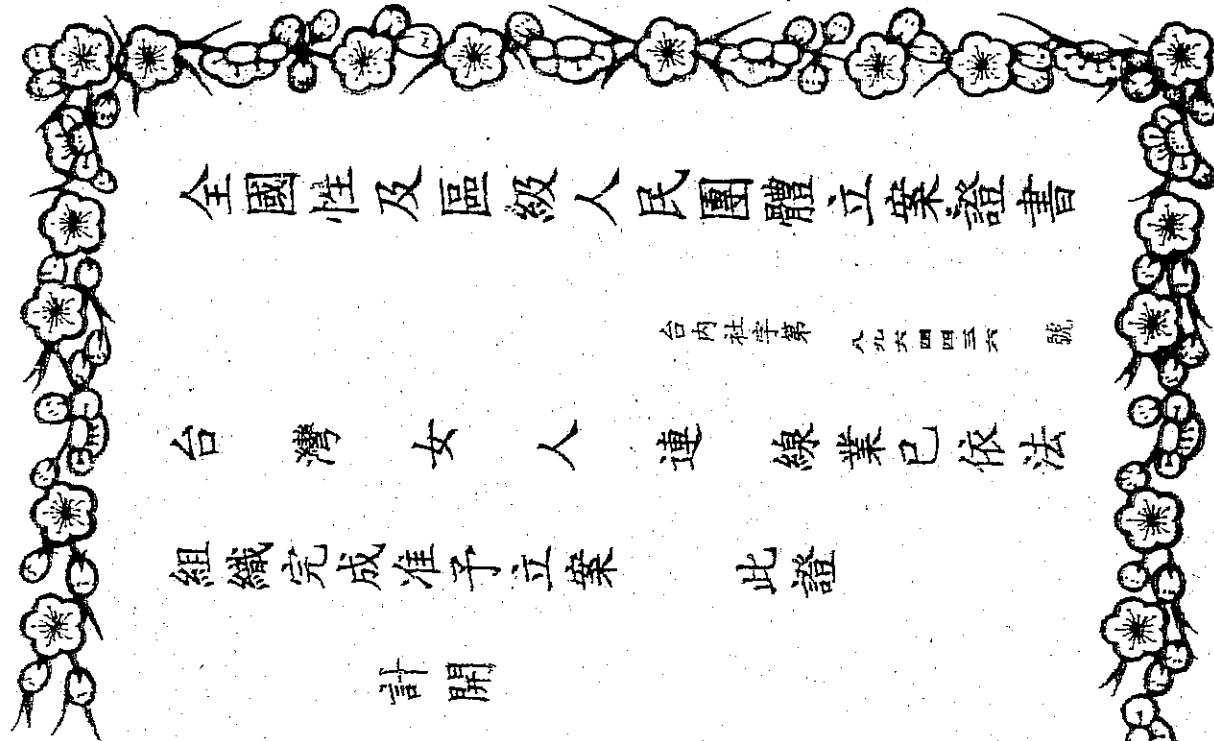 全國性及區級人民團體立案證書
台內社字第 八九六四四三六 號
台灣女人連線業已依法
組織完成准予立案 此證
計開